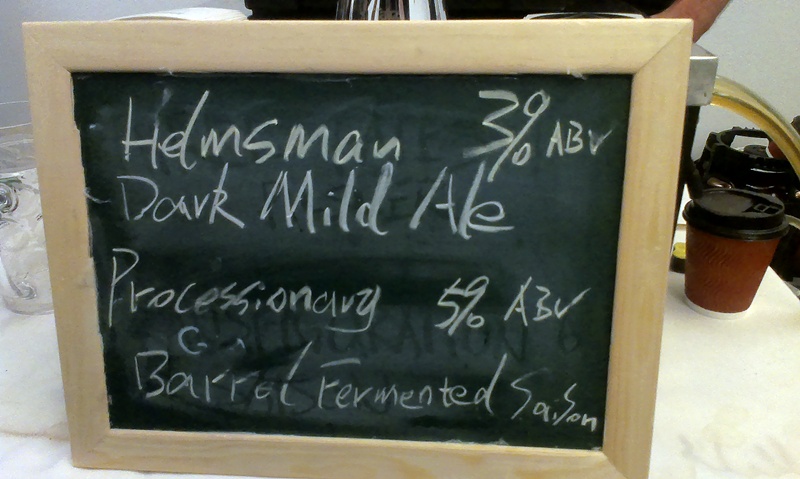 Helmsman 3% ABV
Dark Mild Ale
Processionary 5% ABV
Barrel Fermented Saison